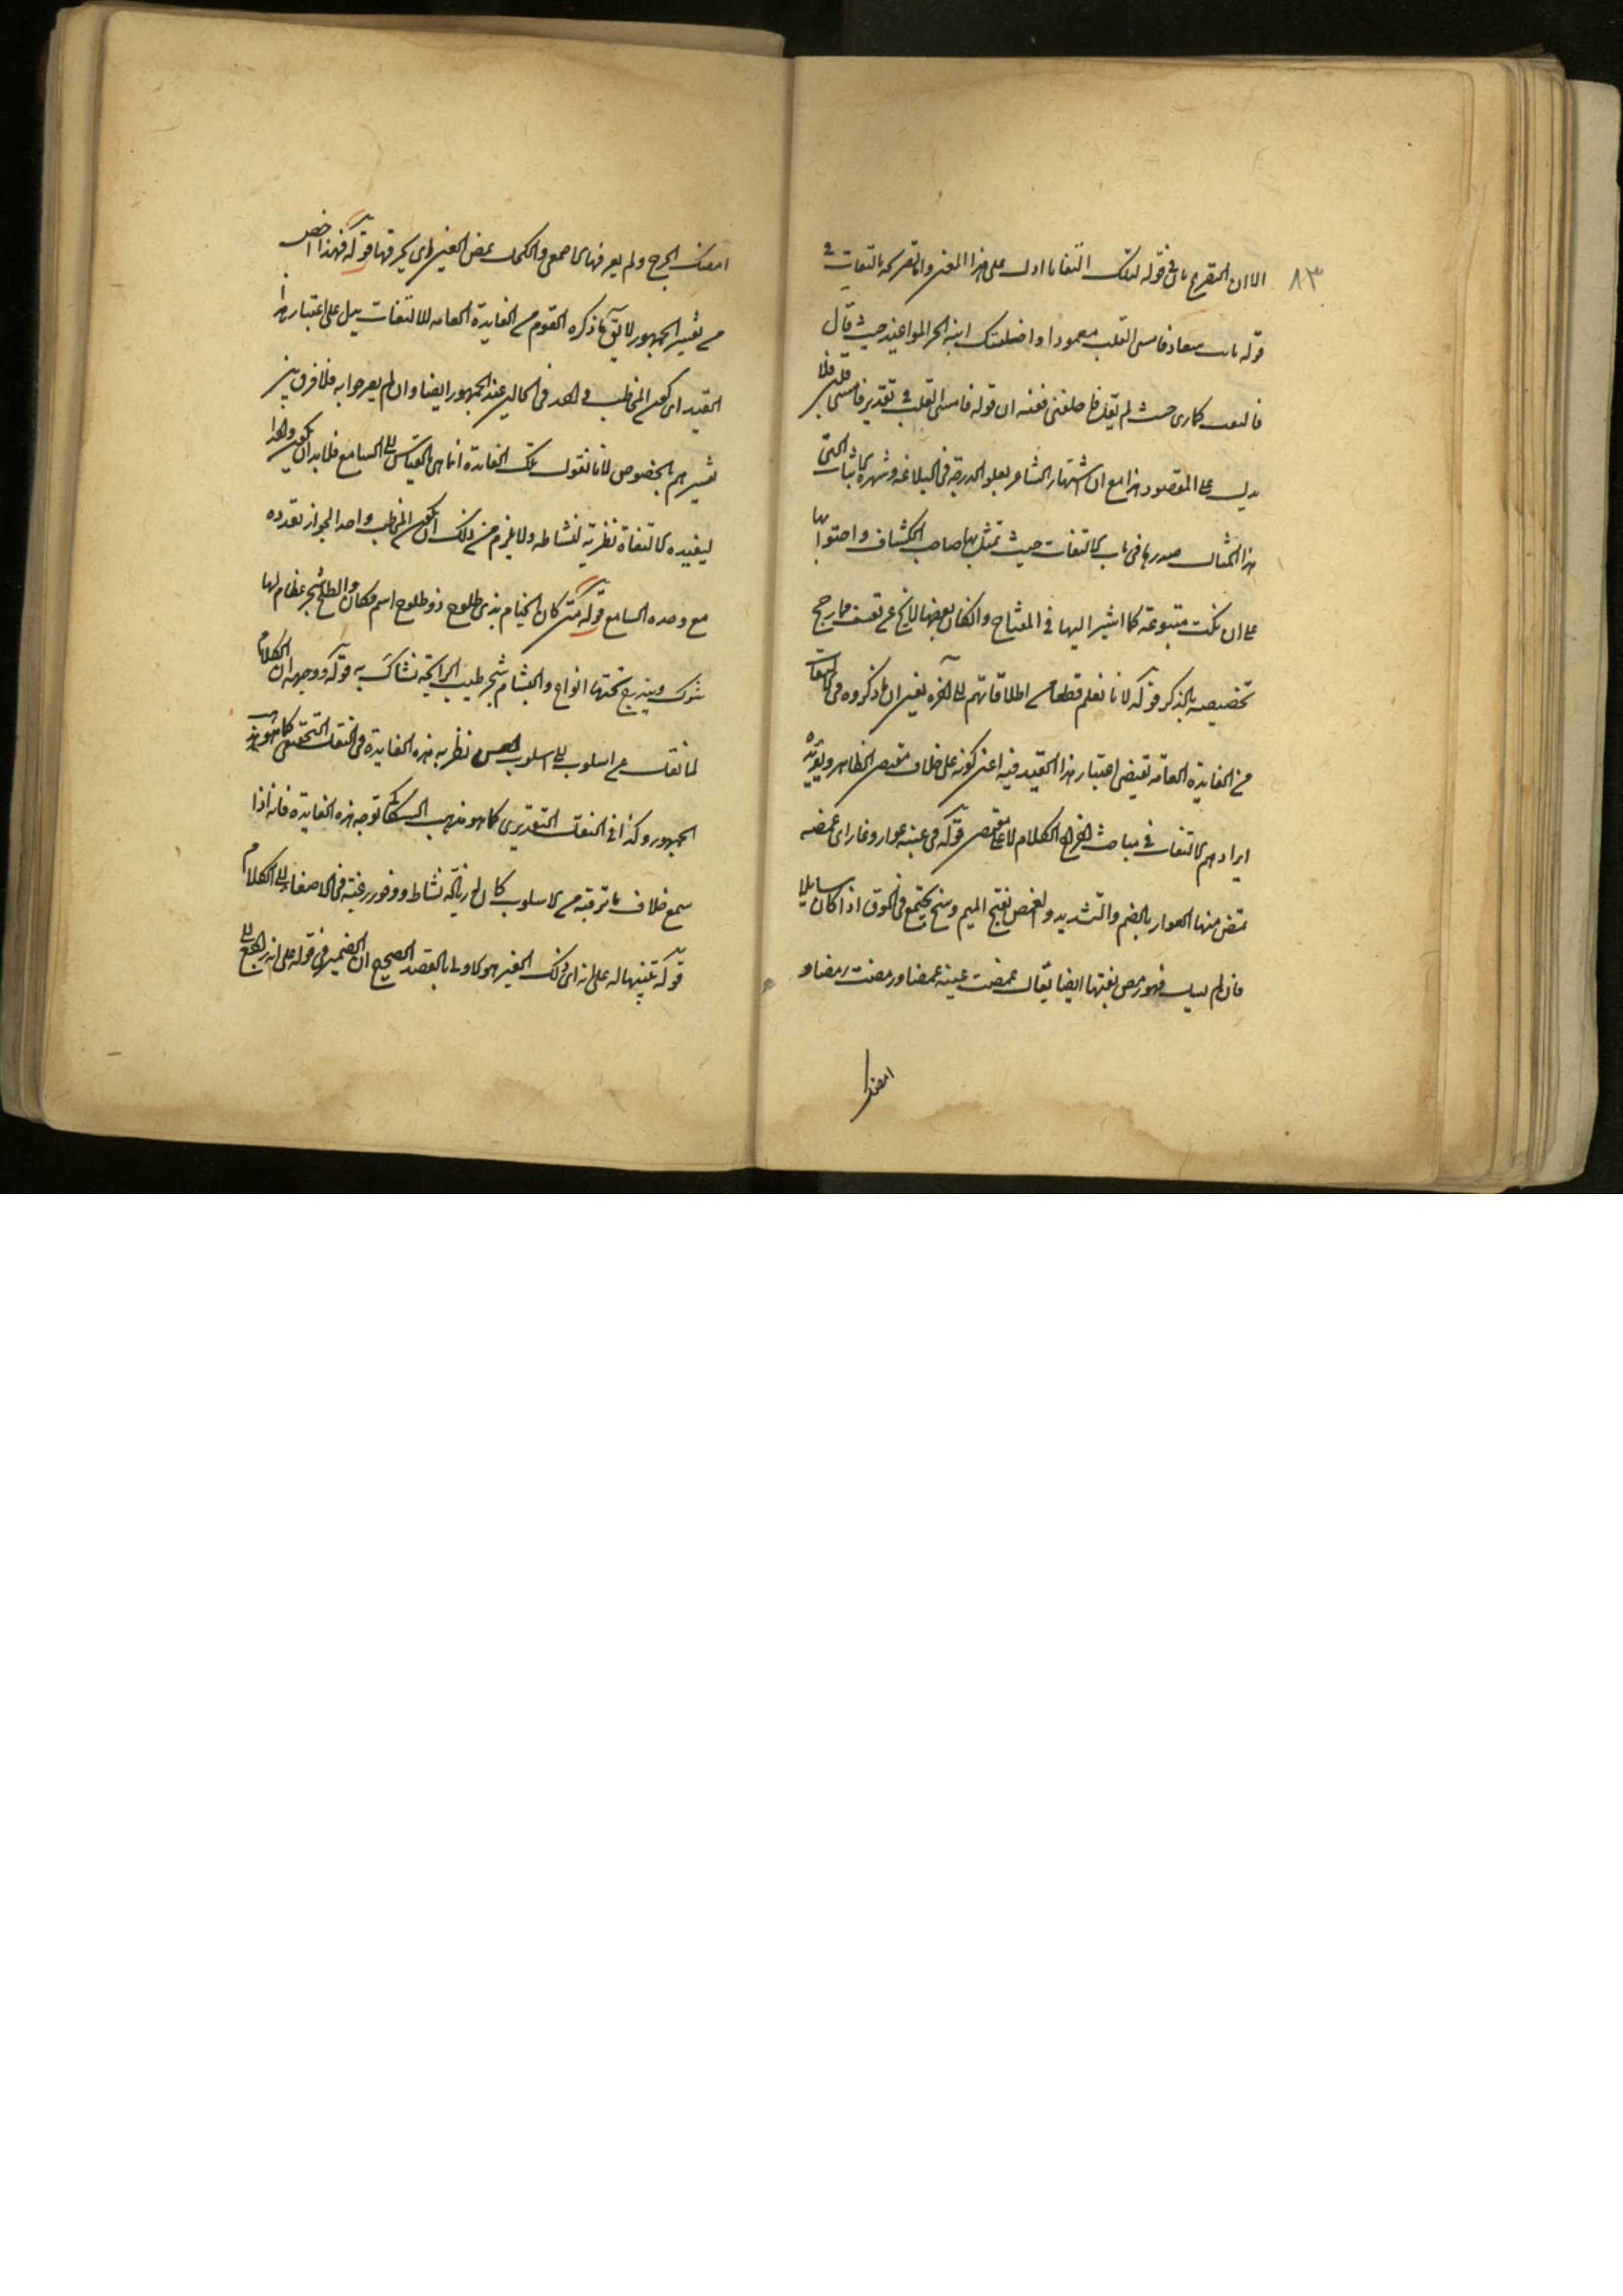 ٨٣
الا ان التصريح بان في قوله ليلك التفاتا ادل على هذا المعنى واما تصريحه بالتفات في
قوله بانت سعاد فامسى القلب معمودا واخلفتك ابنة الحر المواعيد حيث قال
فالتفت كما ترى حيث لم يقل واخلفتني ففيه ان قوله فامسى القلب في تقدير فامسى قلبي فلا
يدل على المقصود هذا مع ان اشتهار الشاعر بعلو الدرجة في البلاغة وشهرة الابيات التي
هذا المثال صدرها في باب الالتفات حيث تمثل بها صاحب الكشاف واحتوائها
على ان نكت متنوعة كما اشير اليها في المفتاح وان كان بعضها لا يخ عن تعسف مما رجح
تخصيصه بالذكر قوله لانا نعلم قطعا من اطلاقاتهم الى آخره يعني ان ما ذكروه في الالتفات
من الفايدة العامة تقتضي اعتبار هذا القيد فيه اعني كونه على خلاف مقتضى الظاهر ويؤيده
ايرادهم الالتفات في مباحث اخراج الكلام لا على مقتضى قوله في عينه عوار وغار اى غمضه
تمض منها العوار بالضم والتشديد والغمص بفتح الميم وسخ يجتمع في الموق اذا كان سايلا
فان لم يسل فهو رمص بفتحها ايضا يقال غمصت عينه غمصا ورمصت رمصا و
امضك
امضك الجرح ولم يعرفها الاصمعي والكحل يمض العين اى يحرقها قوله فهذا اخص
من تفسير الجمهور لا يق ما ذكره القوم من الفايدة العامة للالتفات يدل على اعتبار هذا
القيد اى كون المخاطب واحد في الحالين عند الجمهور ايضا وان لم يصرحوا به فلا فرق بين
تفسيرهم بالخصوص لانا نقول تلك الفايدة انما هي بالقياس الى السامع فلا بد ان يكون واحدا
ليفيده الالتفاة نظرية لنشاطه ولا يلزم من ذلك ان يكون المخاطب واحدا لجواز تعدده
مع وحدة السامع قوله متى كان الخيام بذي طلوح ذو طلوح اسم مكان والطلح شجر عظام لها
شوك ويندرج تحتها انواع والبشام شجر طيب الرايحة تشاك به قوله ووجهه ان الكلام
لما نقل من اسلوب الى اسلوب احسن نظرية هذه الفايدة في النقل التحقيقي كما هو مذهب
الجمهور وكذا في النقل التقديري كما هو مذهب السكاكي توجه هذه الفايدة فانه اذا
سمع خلاف ما ترقبه من الاسلوب كان له زيادة نشاط ووفور رغبة في الاصغاء الى الكلام
قوله تنبيها له على انه اى ذلك الغير هو الاولى بالقصد الصحيح ان الضمير في قوله على انه راجع الى